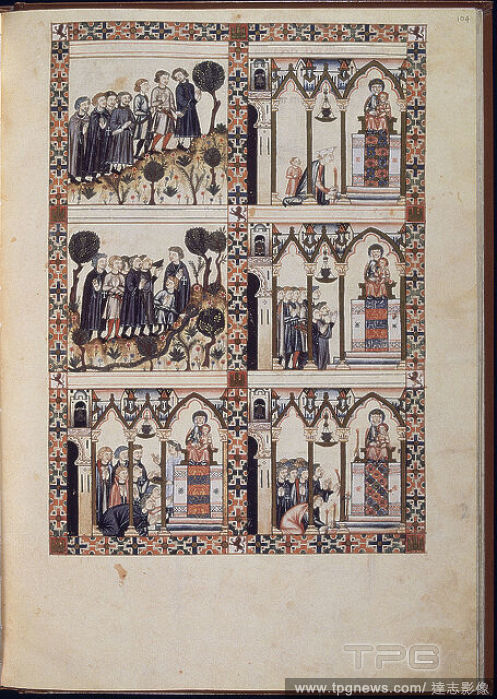 104
TPG
www.tpgnews.com/ 達志影像